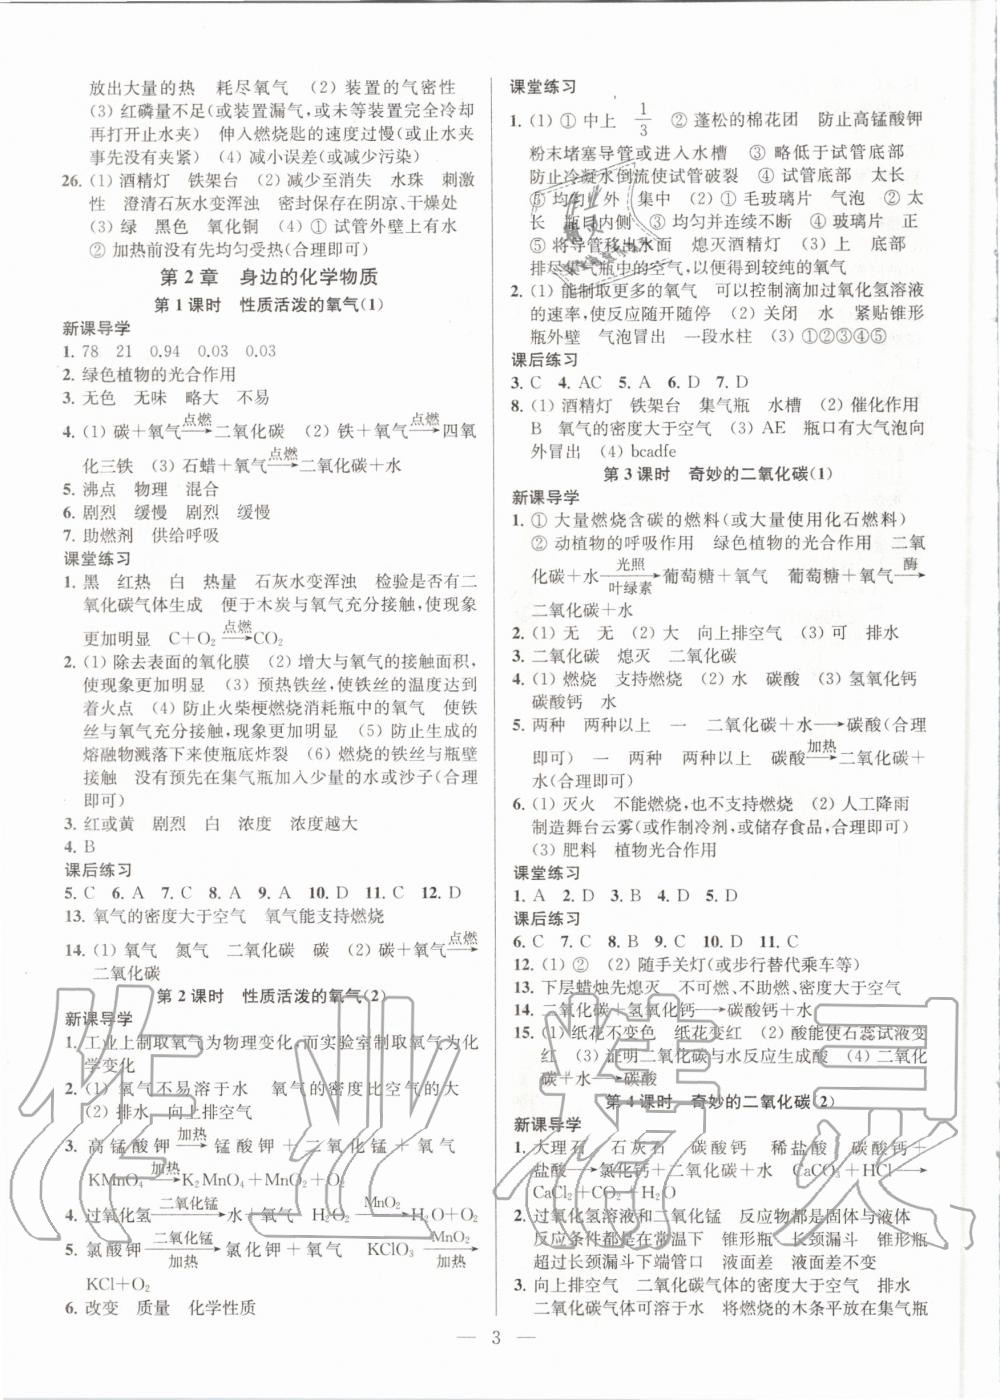 放出大量的热　耗尽氧气　(2) 装置的气密性
(3) 红磷量不足(或装置漏气,或未等装置完全冷却
再打开止水夹)　伸入燃烧匙的速度过慢(或止水夹
事先没有夹紧)　(4) 减小误差(或减少污染)
26. (1) 酒精灯　铁架台　(2) 减少至消失　水珠　刺激
性　澄清石灰水变浑浊　密封保存在阴凉、干燥处
(3) 绿　黑色　氧化铜　(4) ① 试管外壁上有水
② 加热前没有先均匀受热(合理即可)
第 2 章　身边的化学物质
第 1 课时　性质活泼的氧气(1)
新课导学
1. 78　21　0.94　0.03　0.03
2. 绿色植物的光合作用
3. 无色　无味　略大　不易
4. (1) 碳＋氧气 点燃→ 二氧化碳　(2) 铁＋氧气 点燃→ 四氧
化三铁　(3) 石蜡＋氧气 点燃→ 二氧化碳＋水
5. 沸点　物理　混合
6. 剧烈　缓慢　剧烈　缓慢
7. 助燃剂　供给呼吸
课堂练习
1. 黑　红热　白　热量　石灰水变浑浊　检验是否有二
氧化碳气体生成　便于木炭与氧气充分接触,使现象
更加明显　C＋O₂ 点燃→ CO₂
2. (1) 除去表面的氧化膜　(2) 增大与氧气的接触面积,
使现象更加明显　(3) 预热铁丝,使铁丝的温度达到
着火点　(4) 防止火柴梗燃烧消耗瓶中的氧气　使铁
丝与氧气充分接触,现象更加明显　(5) 防止生成的
熔融物溅落下来使瓶底炸裂　(6) 燃烧的铁丝与瓶壁
接触　没有预先在集气瓶加入少量的水或沙子(合理
即可)
3. 红或黄　剧烈　白　浓度　浓度越大
4. B
课后练习
5. C　6. A　7. C　8. A　9. A　10. D　11. C　12. D
13. 氧气的密度大于空气　氧气能支持燃烧
14. (1) 氧气　氮气　二氧化碳　碳　(2) 碳＋氧气 点燃→
二氧化碳
第 2 课时　性质活泼的氧气(2)
新课导学
1. 工业上制取氧气为物理变化,而实验室制取氧气为化
学变化
2. (1) 氧气不易溶于水　氧气的密度比空气的大
(2) 排水　向上排空气
3. 高锰酸钾 加热→ 锰酸钾＋二氧化锰＋氧气
KMnO₄ 加热→ K₂MnO₄＋MnO₂＋O₂
4. 过氧化氢 二氧化锰→ 水＋氧气　H₂O₂ MnO₂→ H₂O＋O₂
5. 氯酸钾 二氧化锰 加热→ 氯化钾＋氧气　KClO₃ MnO₂ 加热→
KCl＋O₂
6. 改变　质量　化学性质
课堂练习
1. (1) ① 中上　1/3　② 蓬松的棉花团　防止高锰酸钾
粉末堵塞导管或进入水槽　③ 略低于试管底部
防止冷凝水倒流使试管破裂　④ 试管底部　太长
⑤ 均匀　外　集中　(2) ① 毛玻璃片　气泡　② 太
长　瓶口内侧　③ 均匀并连续不断　④ 玻璃片　正
⑤ 将导管移出水面　熄灭酒精灯　(3) 上　底部
排尽集气瓶中的空气,以便收集较纯的氧气
2. (1) 能制取更多的氧气　可以控制滴加过氧化氢溶液
的速率,使反应随开随停　(2) 关闭　水　紧贴锥形
瓶外壁　气泡冒出　一段水柱　(3) ①②③④⑤
课后练习
3. C　4. AC　5. A　6. D　7. D
8. (1) 酒精灯　铁架台　集气瓶　水槽　(2) 催化作用
B　氧气的密度大于空气　(3) AE　瓶口有大气泡向
外冒出　(4) bcadfe
第 3 课时　奇妙的二氧化碳(1)
新课导学
1. ① 大量燃烧含碳的燃料(或大量使用化石燃料)
② 动植物的呼吸作用　绿色植物的光合作用　二氧
化碳＋水 光照 叶绿素→ 葡萄糖＋氧气　葡萄糖＋氧气 酶→
二氧化碳＋水
2. (1) 无　无　(2) 大　向上排空气　(3) 可　排水
3. 二氧化碳　熄灭　二氧化碳
4. (1) 燃烧　支持燃烧　(2) 水　碳酸　(3) 氢氧化钙
碳酸钙　水
5. 两种　两种以上　一　二氧化碳＋水→碳酸(合理
即可)　一　两种　两种以上　碳酸 加热→ 二氧化碳＋
水(合理即可)
6. (1) 灭火　不能燃烧,也不支持燃烧　(2) 人工降雨
制造舞台云雾(或作制冷剂,或储存食品,合理即可)
(3) 肥料　植物光合作用
课堂练习
1. A　2. D　3. B　4. D　5. D
课后练习
6. C　7. C　8. C　9. C　10. D　11. C
12. (1) ②　(2) 随手关灯(或步行替代乘车等)
13. 下层蜡烛先熄灭　不可燃、不助燃、密度大于空气
14. 二氧化碳＋氢氧化钙→碳酸钙＋水
15. (1) 纸花不变色　纸花变红　(2) 酸能使石蕊试液变
红　(3) 证明二氧化碳与水反应生成酸　(4) 二氧化
碳＋水→碳酸
第 4 课时　奇妙的二氧化碳(2)
新课导学
1. 大理石　石灰石　碳酸钙　稀盐酸　碳酸钙＋
盐酸→氯化钙＋二氧化碳＋水　CaCO₃＋HCl→
CaCl₂＋CO₂＋H₂O
2. 过氧化氢溶液和二氧化锰　反应物都是固体与液体
反应条件都是在常温下　锥形瓶　长颈漏斗　锥形瓶
超过长颈漏斗下端管口　液面差　液面差不变
3. 向上排空气　二氧化碳气体的密度大于空气　排水
二氧化碳气体可溶于水　将燃烧的木条平放在集气瓶
— 3 —
作业精灵